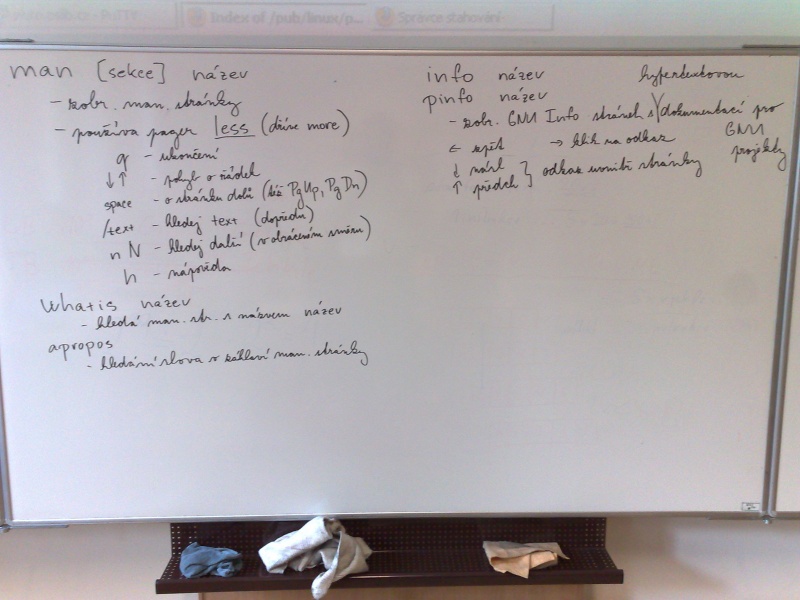 Index of /pub/linux/p...
Správce stahování
man [sekce] název
- zobr. man. stránky
- používa pager less (dříve more)
q - ukončení
↓↑ - pohyb o řádek
space - o stránku dolů (též PgUp, PgDn)
/text - hledej text (dopředu)
n N - hledej další (v obráceném směru)
h - nápověda
whatis název
- hledá man. str. s názvem název
apropos
- hledání slova v záhlaví man. stránky
info název
pinfo název
hypertextovou
- zobr. GNU Info stránek s dokumentací pro
GNU
projekty
← zpět → klik na odkaz
↓ násl.
↑ předch ] odkaz uvnitř stránky